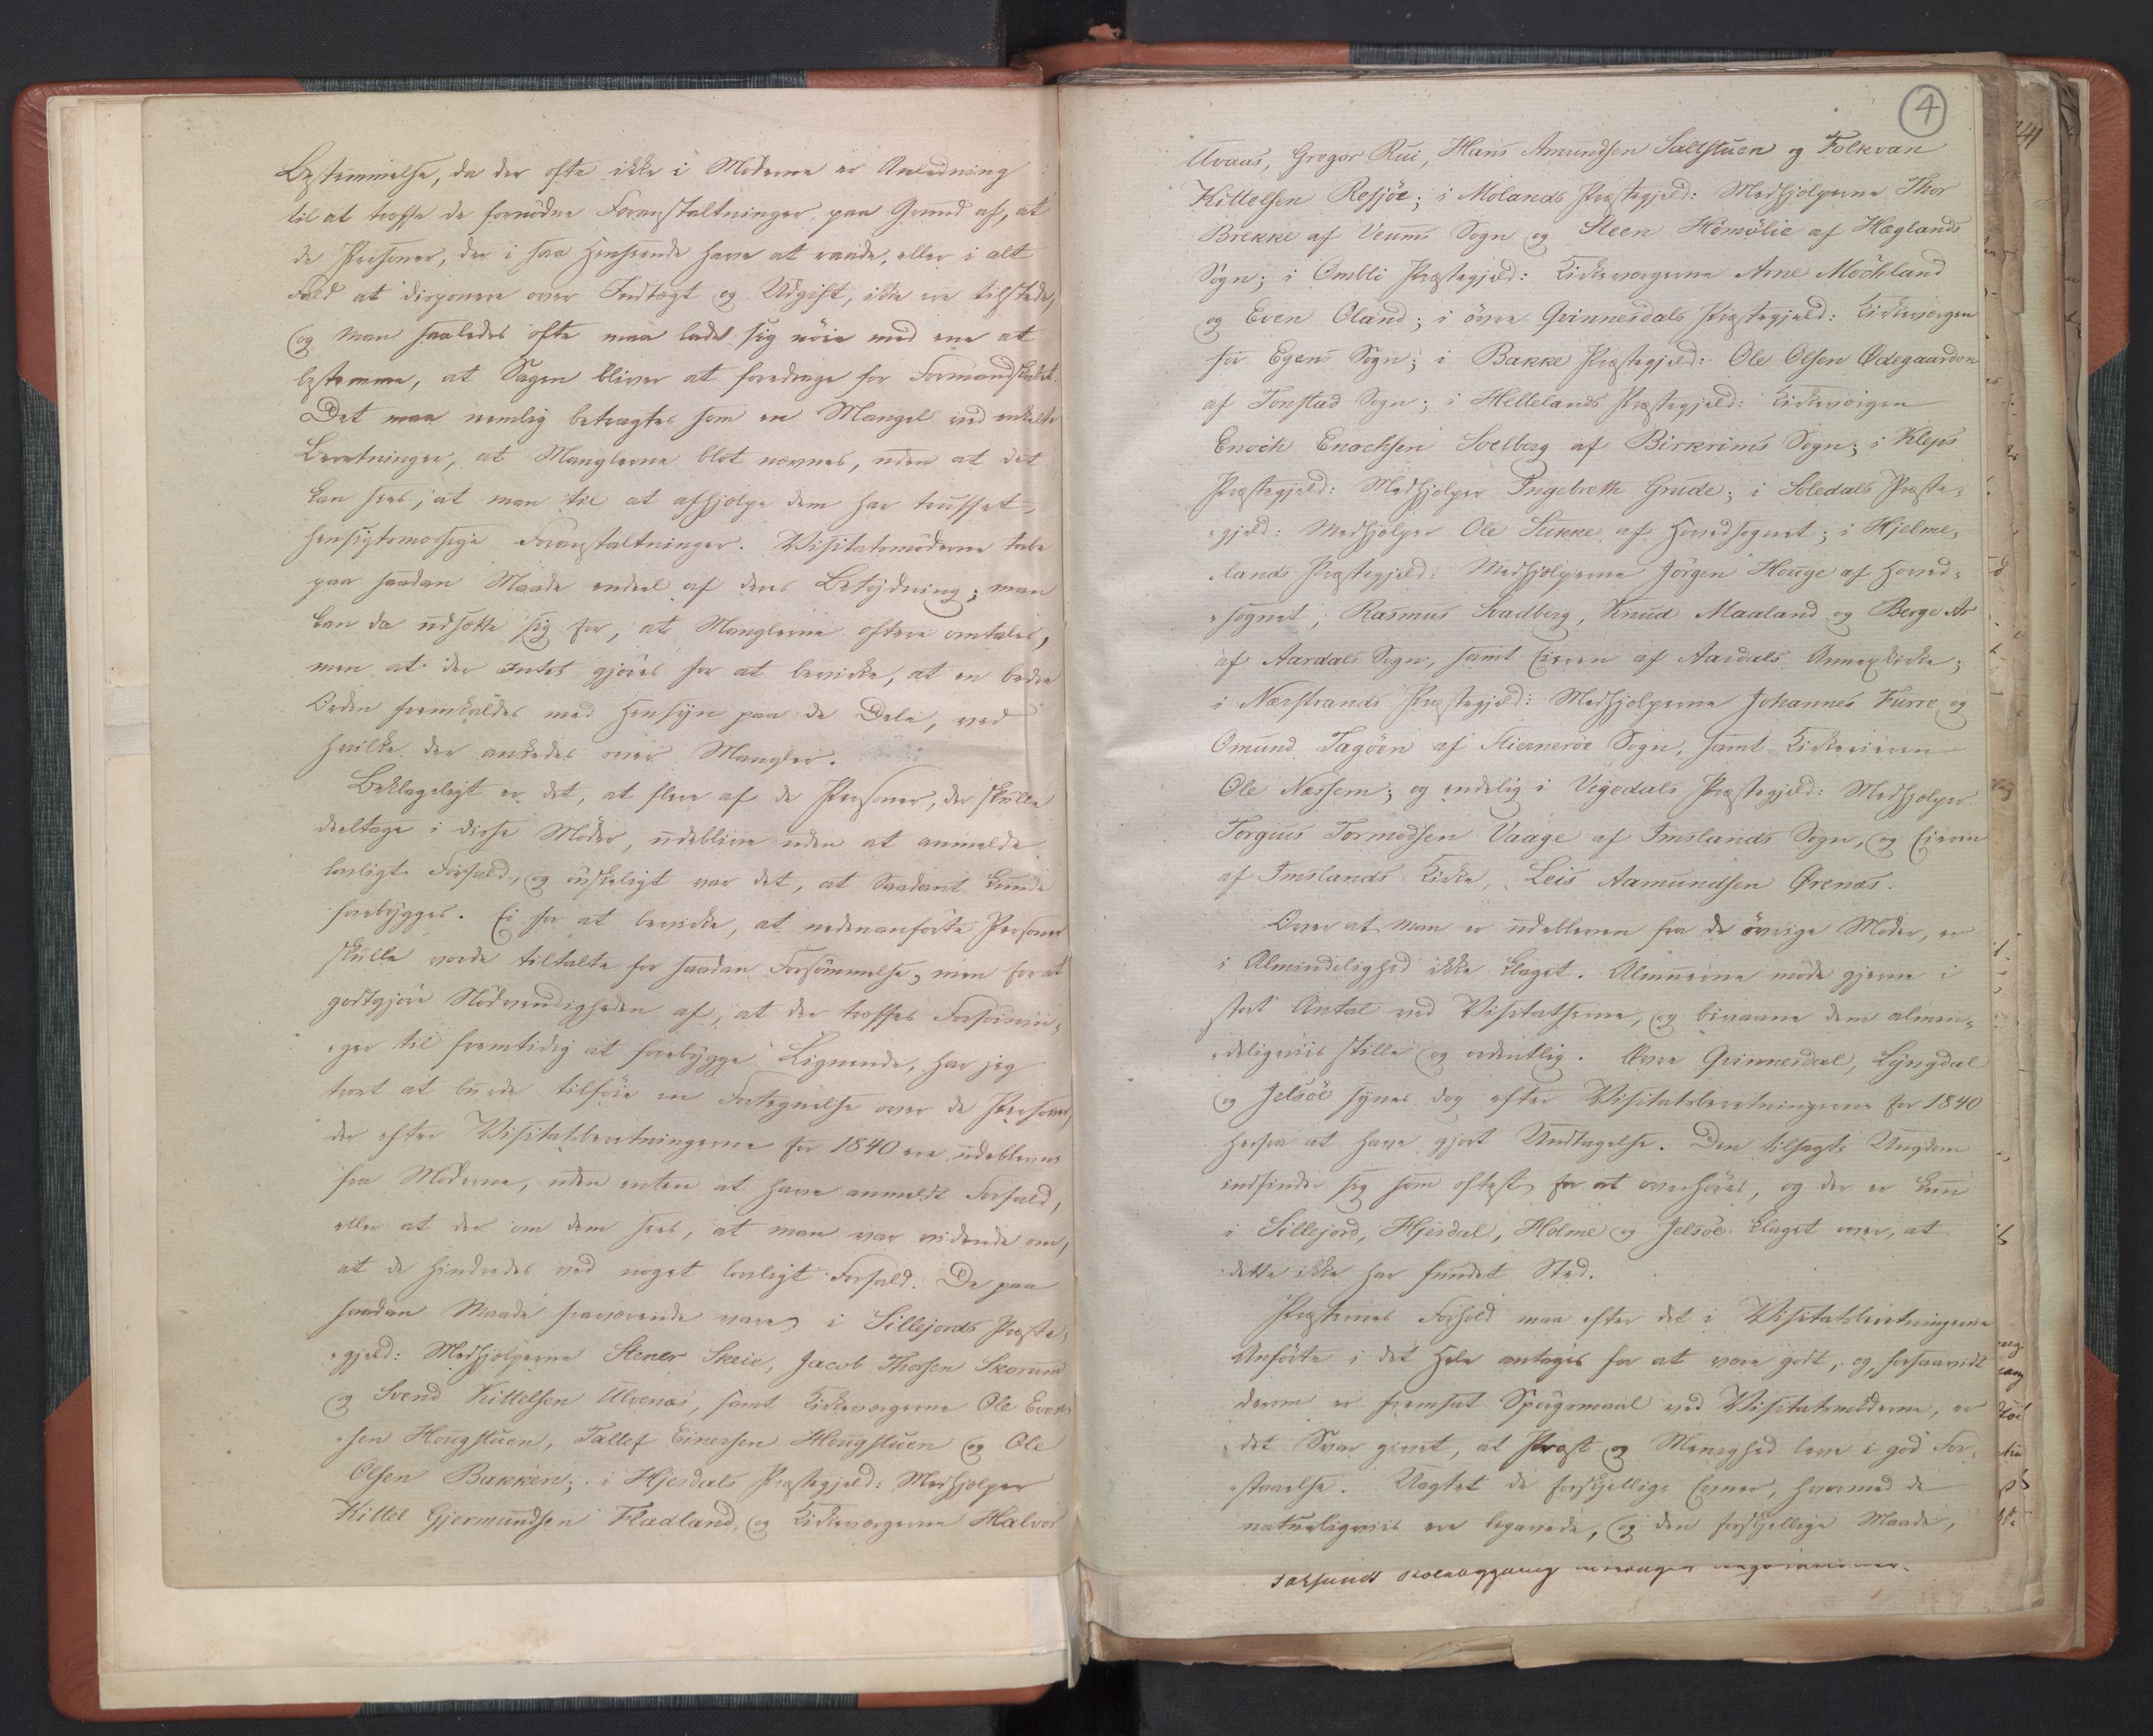 Bestemmelse, da der ofte ikke i Møderne er Anledning
til at træffe de fornødne Foranstaltninger, paa Grund af, at
de Personer, der i saa Henseende have at raade, eller i alt
Fald at disponere over Indtægt og Udgift, ikke ere tilstede,
og man saaledes ofte maa lade sig nöie med ene at
bestemme, at Sagen bliver at foredrage for Formandskabet.
Det maa nemlig betragtes som en Mangel ved enkelte
Beretninger, at Manglerne blot nævnes, uden at det
kan sees, at man til at afhjelpe dem har truffet
hensigtsmæssige Foranstaltninger. Visitatsmöderne tabe
paa saadan Maade endeel af deres Betydning; man
kan da udsætte sig for, at Manglerne oftere omtales,
men at der Intet gjöres for at bevirke, at en bedre
Orden fremkaldes med Hensyn paa de Dele, ved
hvilke der ankedes over Mangler.
Beklageligt er det, at flere af de Personer, der skulle
deeltage i disse Möder, udeblive uden at anmelde
lovligt Forfald, og önskeligt var det, at Saadant kunde
forebygges. Ei for at bevirke, at nedenanförte Personer
skulle vorde tiltalte for saadan Forsömmelse, men for at
godtgjöre Nödvendigheden af, at der træffes Forföinin-
ger til fremtidig at forebygge Lignende, har jeg
troet at burde tilföie en Fortegnelse over de Personer,
der efter Visitatsberetningerne for 1840 ere udeblevne
fra Möderne, uden enten at have anmeldt Forfald,
eller at der om dem sees, at man var vidende om,
at de hindredes ved noget lovligt Forfald. De paa
saadan Maade fraværende vare, i Sillejords Præste-
gjeld: Medhjelperne Stener Skeie, Jacob Thorsen Skorum
og Svend Kittelsen Ulvenæs, samt Kirkeværgerne Ole Even-
sen Hougstuen, Tallef Einersen Hougstuen og Ole
Olsen Bakken; i Hjerdals Præstegjeld: Medhjelper
Kittel Gjermundsen Fladland, og Kirkeværgerne Halvor
4
Uvaas, Gregor Rui, Hans Amundsen Saltstuen og Folkvan
Kittelsen Refsjöe; i Molands Præstegjeld: Medhjelperne Thor
Brekke af Veums Sogn og Steen Hömölie af Hæglands
Sogn; i Ombli Præstegjeld: Kirkeværgerne Arne Möchland
og Even Oland; i övre Qvinnesdals Præstegjeld: Kirkeværgen
for Egens Sogn; i Bakke Præstegjeld: Ole Olsen Ödegaarden
af Tonstad Sogn; i Hellelands Præstegjeld: Kirkeværgen
Enoch Enochsen Svelberg af Birkrims Sogn; i Kleps
Præstegjeld: Medhjelper Ingebreth Grude; i Soledals Præste-
gjeld: Medhjelper Ole Sukke af Hovedsognet; i Hjelme-
lands Præstegjeld: Medhjelperne Jörgen Houge af Hoved-
sognet, Rasmus Svadberg, Knud Maaland og Berge
af Aardals Sogn, samt Eieren af Aardals Annexkirke;
i Nærstrands Præstegjeld: Medhjelperne Johannes Furre og
Omund Tagöen af Stierneröe Sogn, samt Kirkeeieren
Ole Næssem; og endelig i Vigedals Præstegjeld: Medhjelper
Torgius Tormodsen Vaage af Imslands Sogn, og Eieren
af Imslands Kirke, Leis Aamundsen Örenæs.
Over at man er udebleven fra de övrige Möder, er
i Almindelighed ikke klaget. Almuerne möde gjerne i
stort Antal ved Visitatserne, og bivaane dem almin-
deligviis stille og ordentlig. Övre Qvinnesdal, Lyngdal
og Jelsöe synes dog efter Visitatsberetningerne for 1840
herfra at have gjort Undtagelse. Den tilsagte Ungdom
indfinder sig som oftest for at overhöres, og der er kun
i Sillejord, Hjerdal, Holme og Jelsöe klaget over, at
dette ikke har fundet Sted.
Præsternes Forhold maa efter det i Visitatsberetningerne
Anförte i det Hele antages for at være godt, og forsaavidt
derom er fremsat Spörgsmaal ved Visitatsmöderne, er
det Svar givet, at Præst og Menighed leve i god For-
staaelse. Uagtet de forskjellige Evner, hvormed de
naturligviis ere begavede, og den forskjellige Maade,